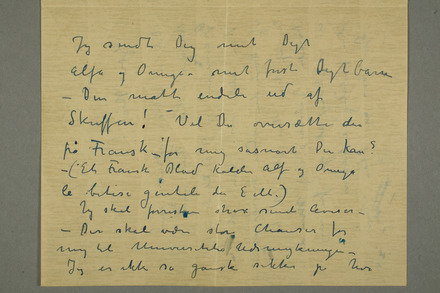 Jeg sendte Dig mit Digt
Alfa og Omega - mit første Digt
- Den måtte endelig ud af
Skuffen! - Vil Du oversætte den
på Fransk - for mig såsnart Du kan?
- (Et Fransk Blad kalder Alf og Omega
la betise gentile de E.M.)
Jg skal forresten sende
- Der skal være store Chanser for
mig til Universitets Udsmykningen -
Jg er ikke så ganske sikker på